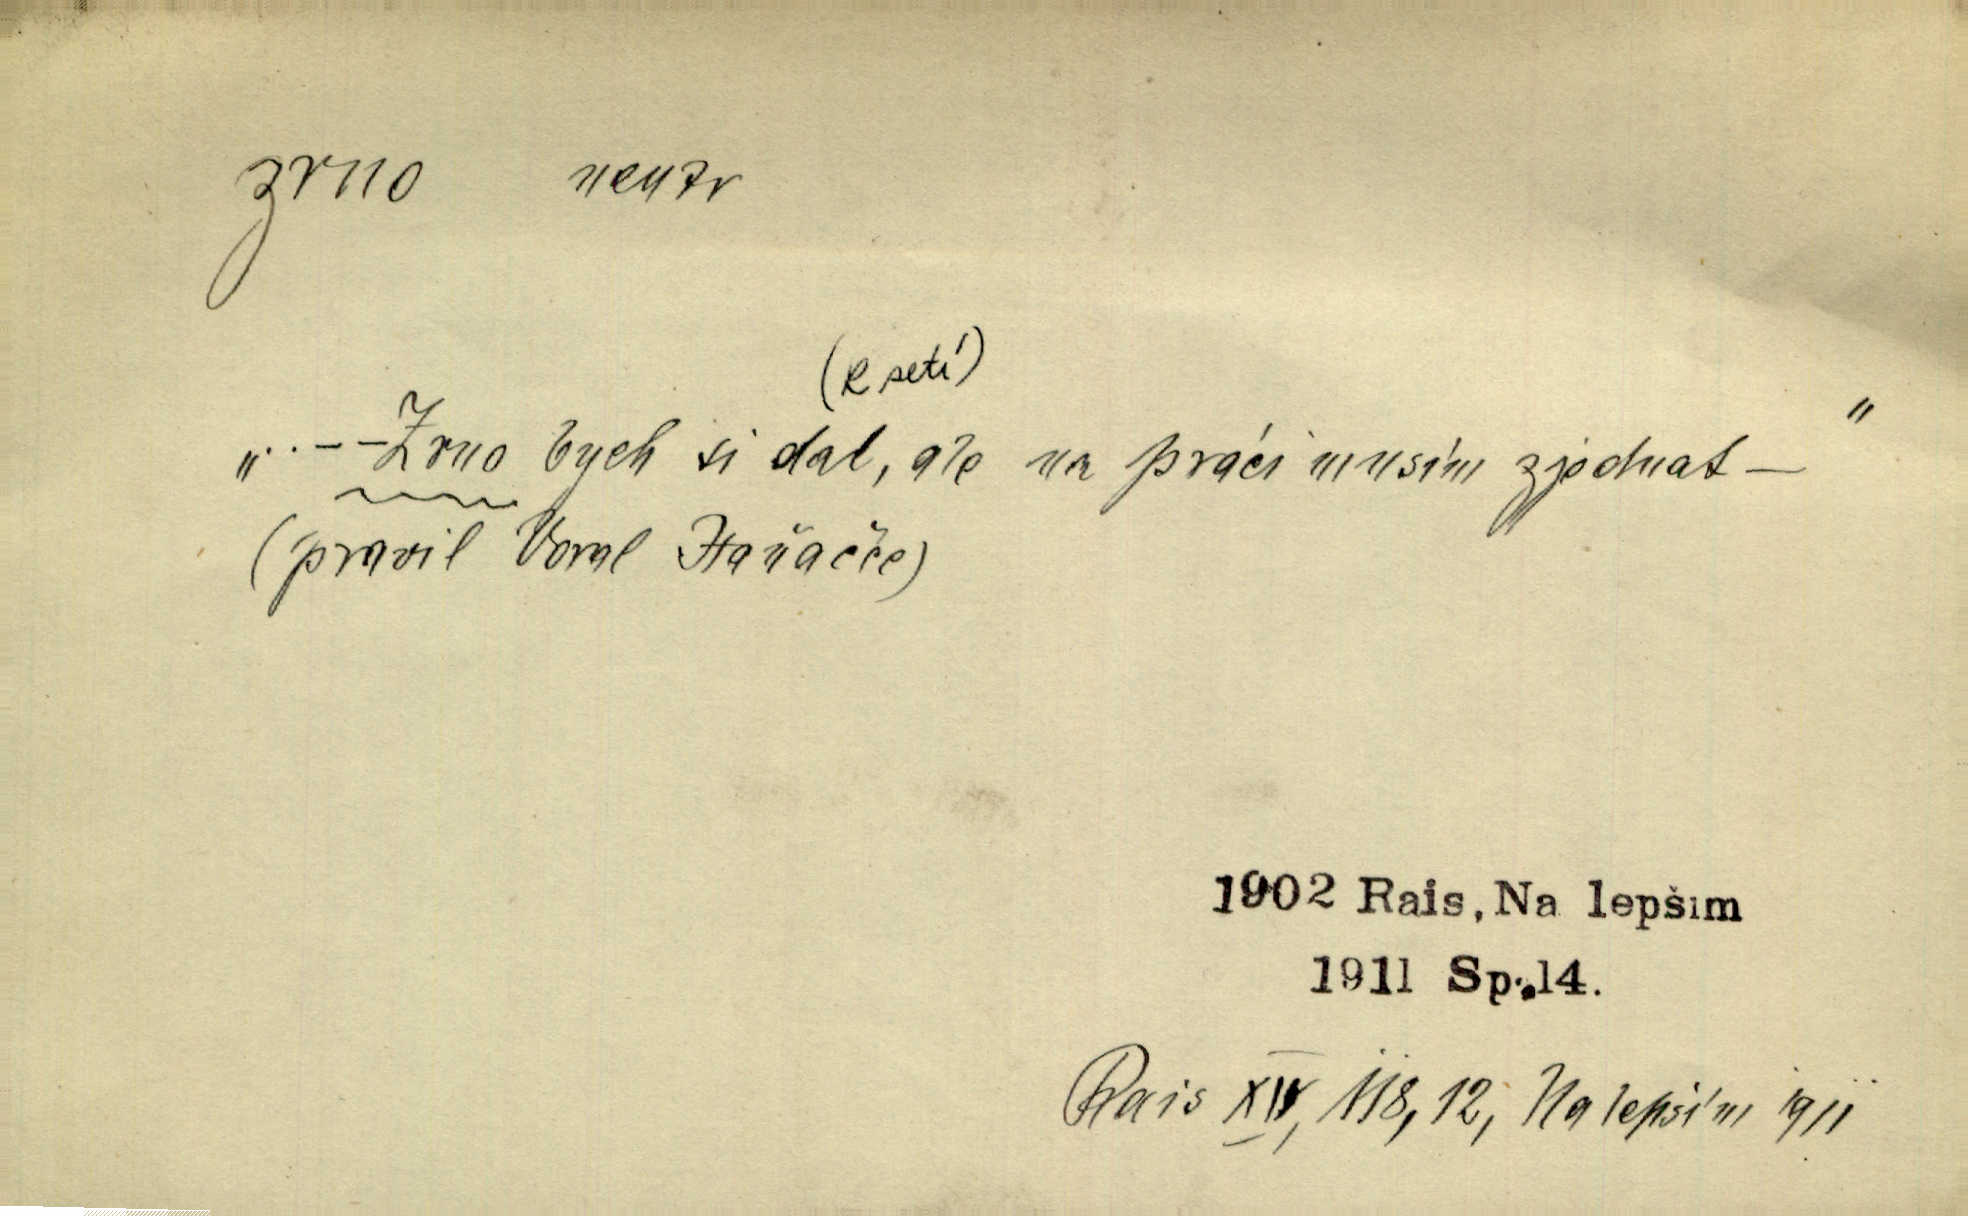 zrno neutr
(k setí)
„..--Zrno bych si dal, ale na práci musím zjednat —"
(pravil Voral Haňačče)
1902 Rais, Na lepším
1911 Sp. 14.
Rais XIV, 118, 12, Na lepším 1911